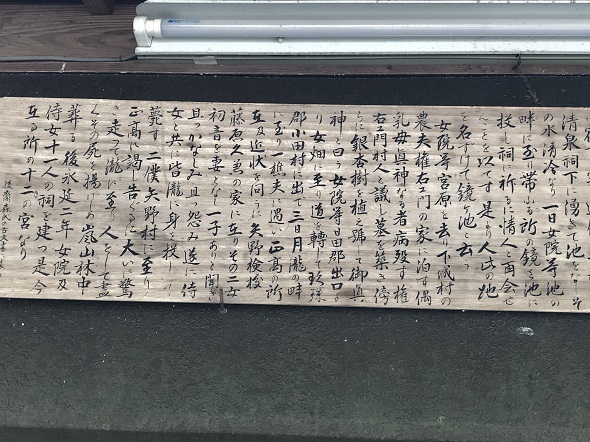 清泉祠下に湧き池を
の水清冷なり一日女院等池の
畔に至り帯ふる所の鏡を池に
投し祠に祈るに情人と再会せ
んことを以てす是より人此の池
を名すけて鏡ヶ池と云ふ
女院等宮原を去り下城村の
農夫権右エ門の家に泊す偶
乳母眞神なる者病歿す権
右エ門村人と議し墓を築き傍
らに銀杏樹を植え號して御眞
神と曰ふ女院等日田郡出口よ
り女畑に至り道を轉して玖珠
郡小田村に出で三日月瀧の畔
に至り一樵夫に遇い正高の所
在及近状を問ふに矢野検校
藤原久善の家に在りその二女
初音を妻となす一子ありと聞き
且つかなしみ且つ怨み遂に侍
女と共に皆瀧に身を投して
薨す二僕矢野村に至り
正高に謁し告ぐるに大いに驚
き走って瀧に至り人をして盡
くその死を揚げしめ嵐山林中
に葬る後永延二年女院及
侍女十一人の祠を建つ是今
在る所の十二の宮なり